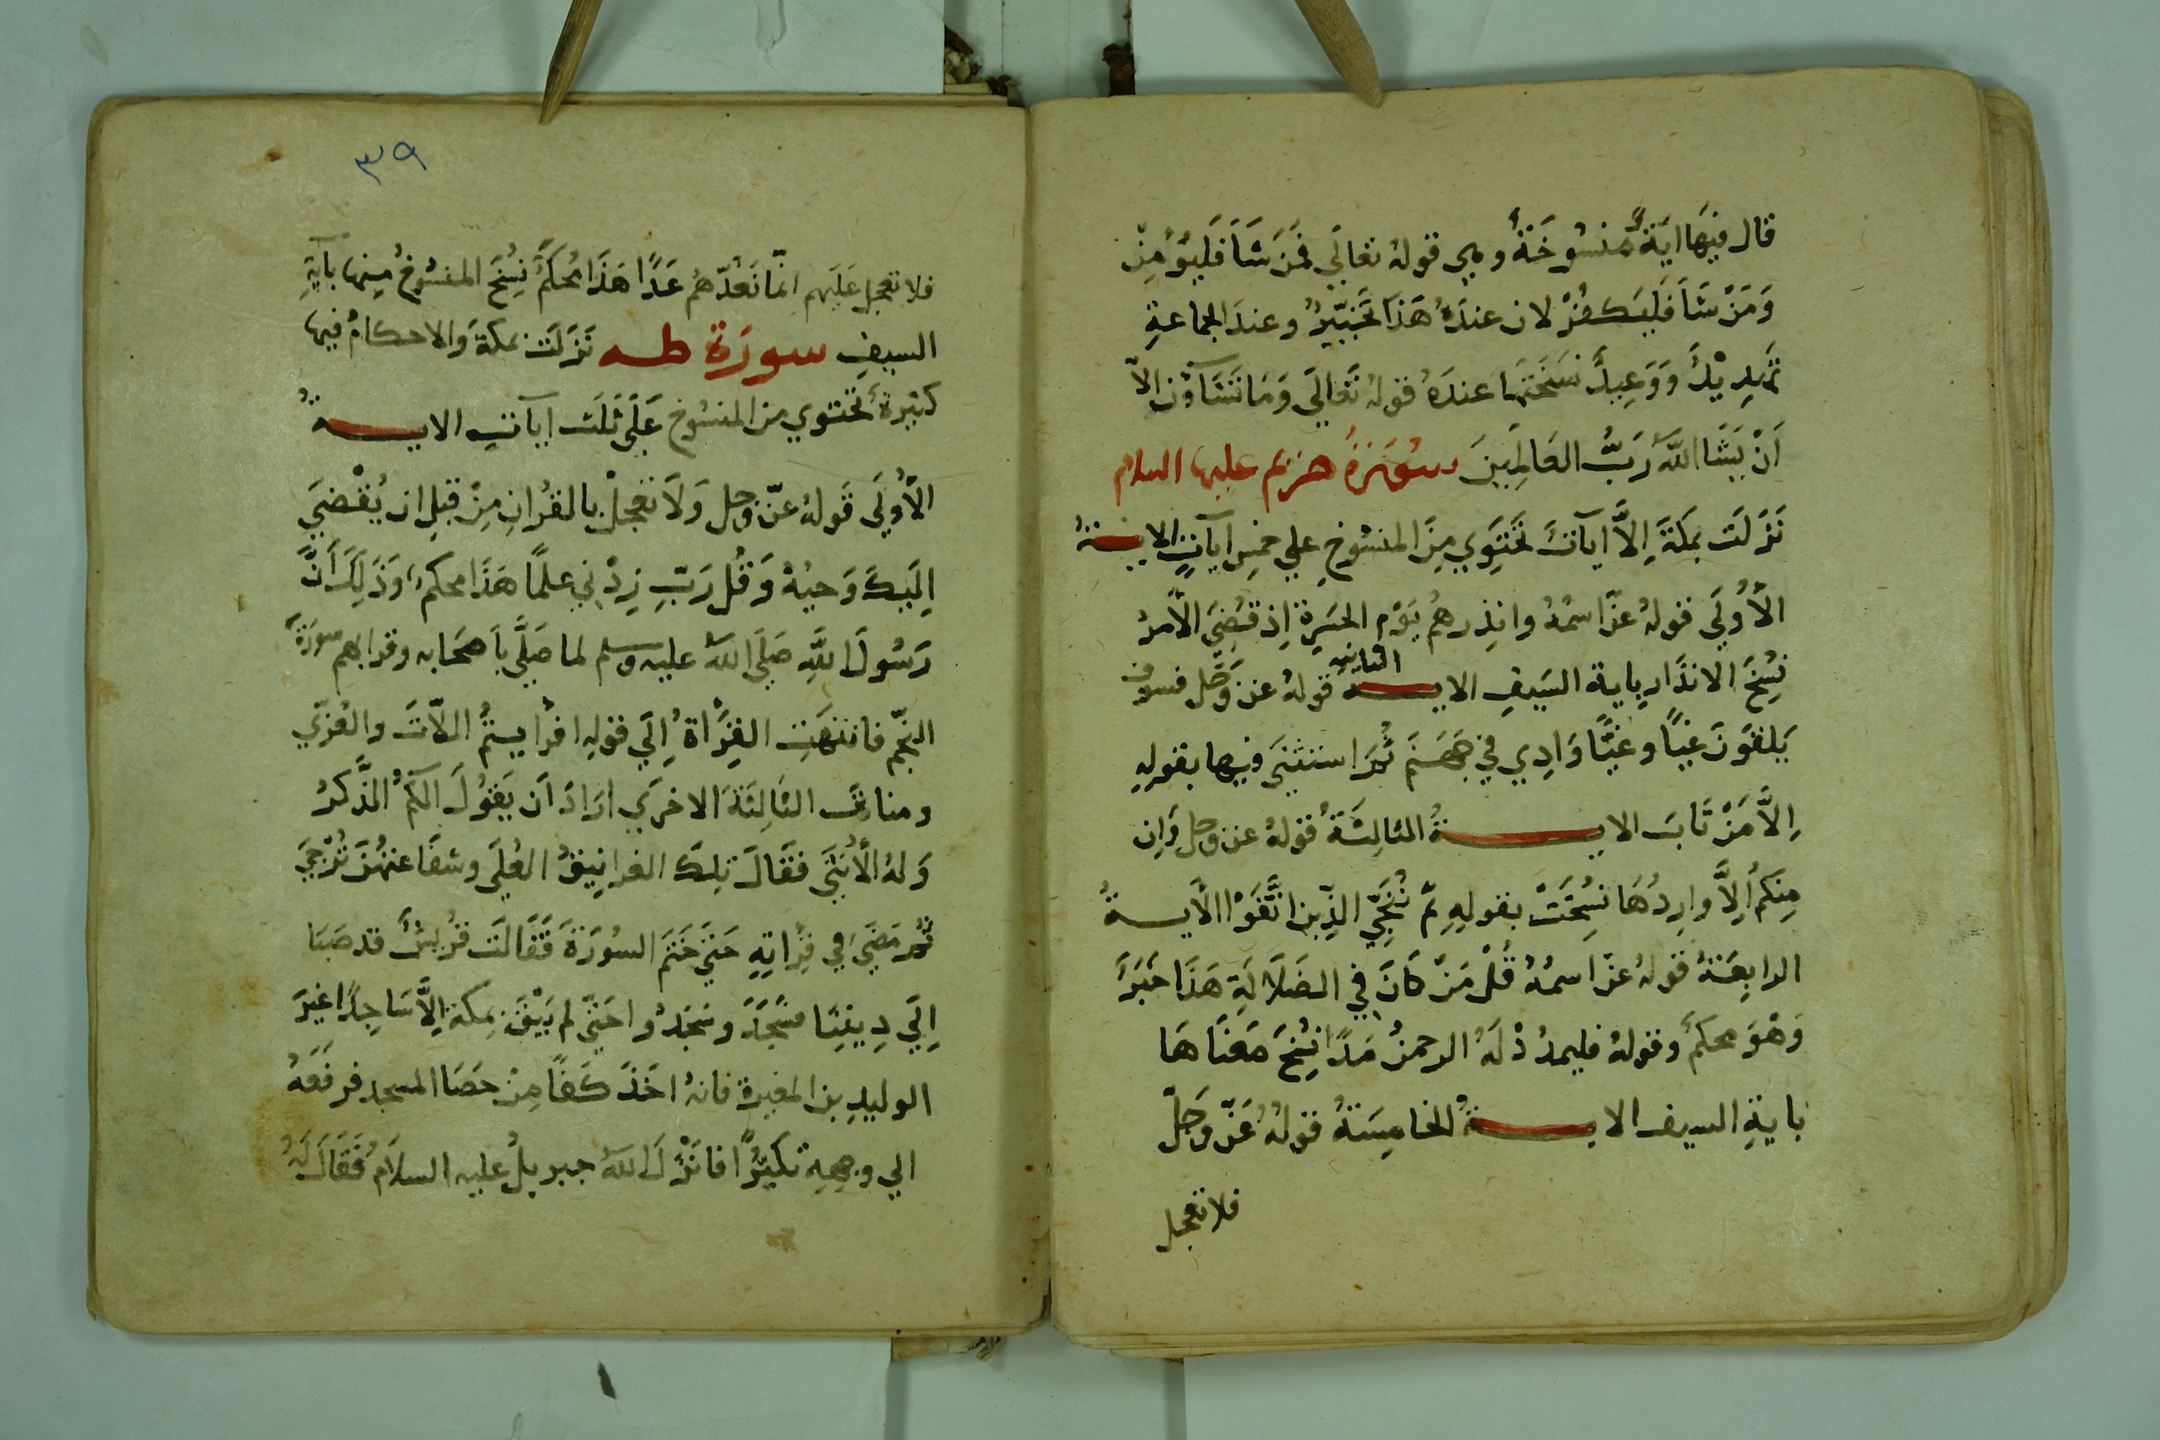 قال فيها اية منسوخة وهي قوله تعالي فمن شا فليؤمن
ومن شا فليكفر لان عنده هذا تخيير وعند الجماعة
تهديد ووعيد نسختها عنده قوله تعالي وما تشاؤن الا
ان يشا الله رب العالمين سورة مريم عليها السلام
نزلت بمكة الا ايات تحتوي من المنسوخ علي خمس ايات الاية
الأولي قوله عز اسمه وانذرهم يوم الحسرة اذ قضي الأمر
نسخ الانذار باية السيف الاية الثانيه قوله عز وجل فسوف
يلقون غيا وغيا وادي في جهنم ثم استثني فيها بقوله
الا من تاب الاية الثالثة قوله عز وجل وان
منكم الا واردها نسخت بقوله ثم ننجي الذين اتقوا الاية
الرابعة قوله عز اسمه قل من كان في الضلالة هذا خبر
وهو محكم وقوله فليمدد له الرحمن مدا نسخ معناها
باية السيف الاية الخامسة قوله عز وجل
فلا تعجل
٣٩
فلا تعجل عليهم انما نعدهم عدا هذا محكم نسخ المنسوخ منها بآية
السيف سورة طه نزلت بمكة والاحكام فيها
كثيرة تحتوي من المنسوخ علي ثلث آيات الاية
الأولي قوله عز وجل ولا تعجل بالقران من قبل ان يقضي
اليك وحيه وقل رب زدني علما هذا محكم وذلك أن
رسول الله صلي الله عليه وسلم لما صلي باصحابه وقرا بهم سورة
النجم فانتهت القراة الي قوله افرايتم اللات والعزي
ومناة الثالثة الاخري اراد ان يقول الكم الذكر
وله الأنثي فقال تلك الغرانيق العلي وشفاعتهن ترجي
ثم مضي في قراته حتي ختم السورة فقالت قريش قد صبا
الي ديننا فسجد وسجدوا حتي لم يبق بمكة الا ساجدا غير
الوليد بن المغيرة فانه اخذ كفا من حصا المسجد فرفعه
الي وجهه تكبرا فانزل الله جبريل عليه السلام فقال له